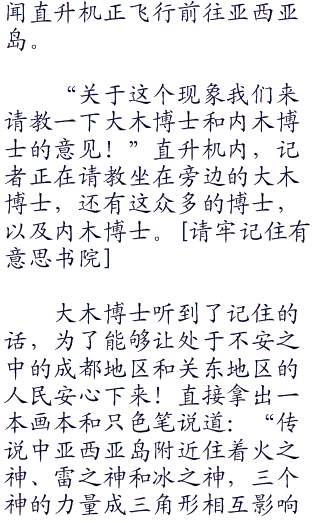 闻直升机正飞行前往亚西亚
岛。
“关于这个现象我们来
请教一下大木博士和内木博
士的意见！”直升机内，记
者正在请教坐在旁边的大木
博士，还有这众多的博士，
以及内木博士。[请牢记住有
意思书院]
大木博士听到了记住的
话，为了能够让处于不安之
中的成都地区和关东地区的
人民安心下来！直接拿出一
本画本和只色笔说道：“传
说中亚西亚岛附近住着火之
神、雷之神和冰之神，三个
神的力量成三角形相互影响